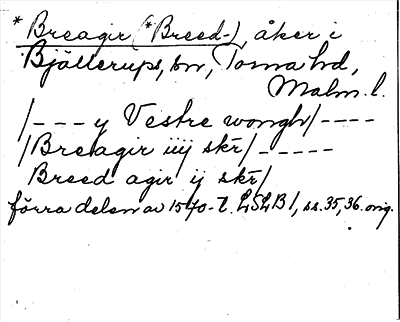 * Breagir (*Breed-), åker i
Bjällerups sn, Torna hd,
Malm. l.
/--- y Vestre wongh/----
/Breagir iiij skr/-----
Breed agir ij skr/
förra delen av 1570-t. LSLB 1, ss. 35, 36. orig.